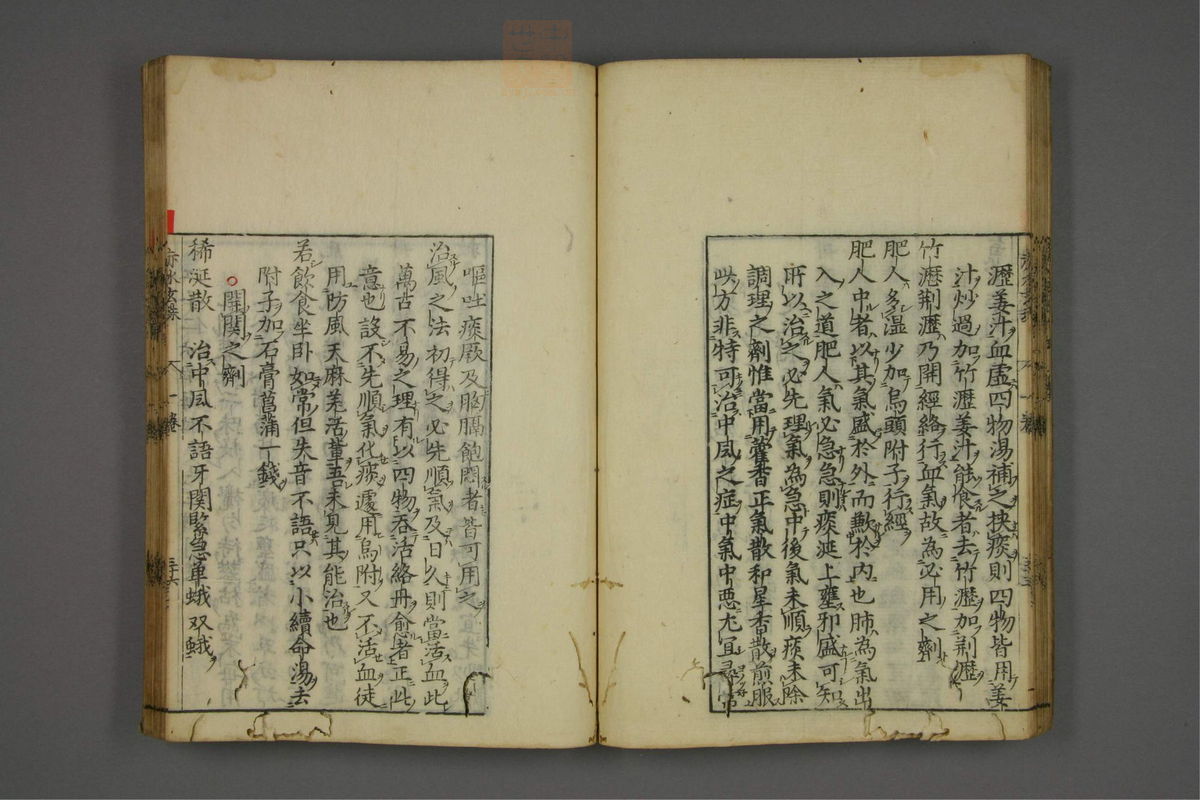 瀝姜汁血虛四物湯補之挾痰則四物皆用姜
汁炒過加竹瀝姜汁能食者去竹瀝加荆瀝
竹瀝荆瀝乃開經絡行血氣故為必用之劑
肥人多湿少加烏頭附子行經
肥人中者以其氣盛於外而歉於内也肺為氣出
入之道肥人氣必急急則痰涎上壅邪盛可知
所以治之必先理氣為急中後氣未順痰未除
調理之劑惟當用藿香正氣散和星香散煎服
此方非特可治中風之症中氣中惡尤宜尋常
嘔吐痰厥及胸膈飽悶者皆可用之
治風之法初得之必先順氣及日久則當活血此
萬古不易之理有以四物吞活絡丹愈者正此
意也設不先順氣化痰遽用烏附又不活血徒
用防風天麻羗活輩吾未見其能治也
若飲食坐卧如常但失音不語只以小續命湯去
附子加石膏菖蒲一錢
○開関之劑
稀涎散 治中風不語牙関緊急单蛾双蛾
赤水玄珠 一卷 三十六